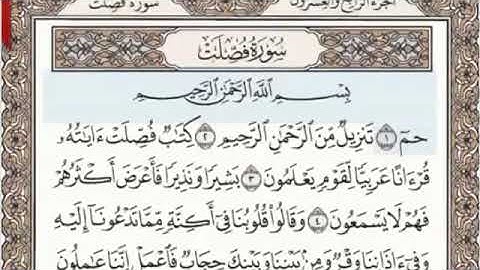 سورة فصلت الجزء الرابع والعشرون
سُورَةُ فُصِّلَتْ
بِسْمِ اللَّهِ الرَّحْمَٰنِ الرَّحِيمِ
حمٓ ١ تَنزِيلٌ مِّنَ الرَّحْمَٰنِ الرَّحِيمِ ٢ كِتَٰبٌ فُصِّلَتْ ءَايَٰتُهُۥ
قُرْءَانًا عَرَبِيًّا لِّقَوْمٍ يَعْلَمُونَ ٣ بَشِيرًا وَنَذِيرًا فَأَعْرَضَ أَكْثَرُهُمْ
فَهُمْ لَا يَسْمَعُونَ ٤ وَقَالُوا۟ قُلُوبُنَا فِىٓ أَكِنَّةٍ مِّمَّا تَدْعُونَآ إِلَيْهِ
وَفِىٓ ءَاذَانِنَا وَقْرٌ وَمِنۢ بَيْنِنَا وَبَيْنِكَ حِجَابٌ فَٱعْمَلْ إِنَّنَا عَٰمِلُونَ